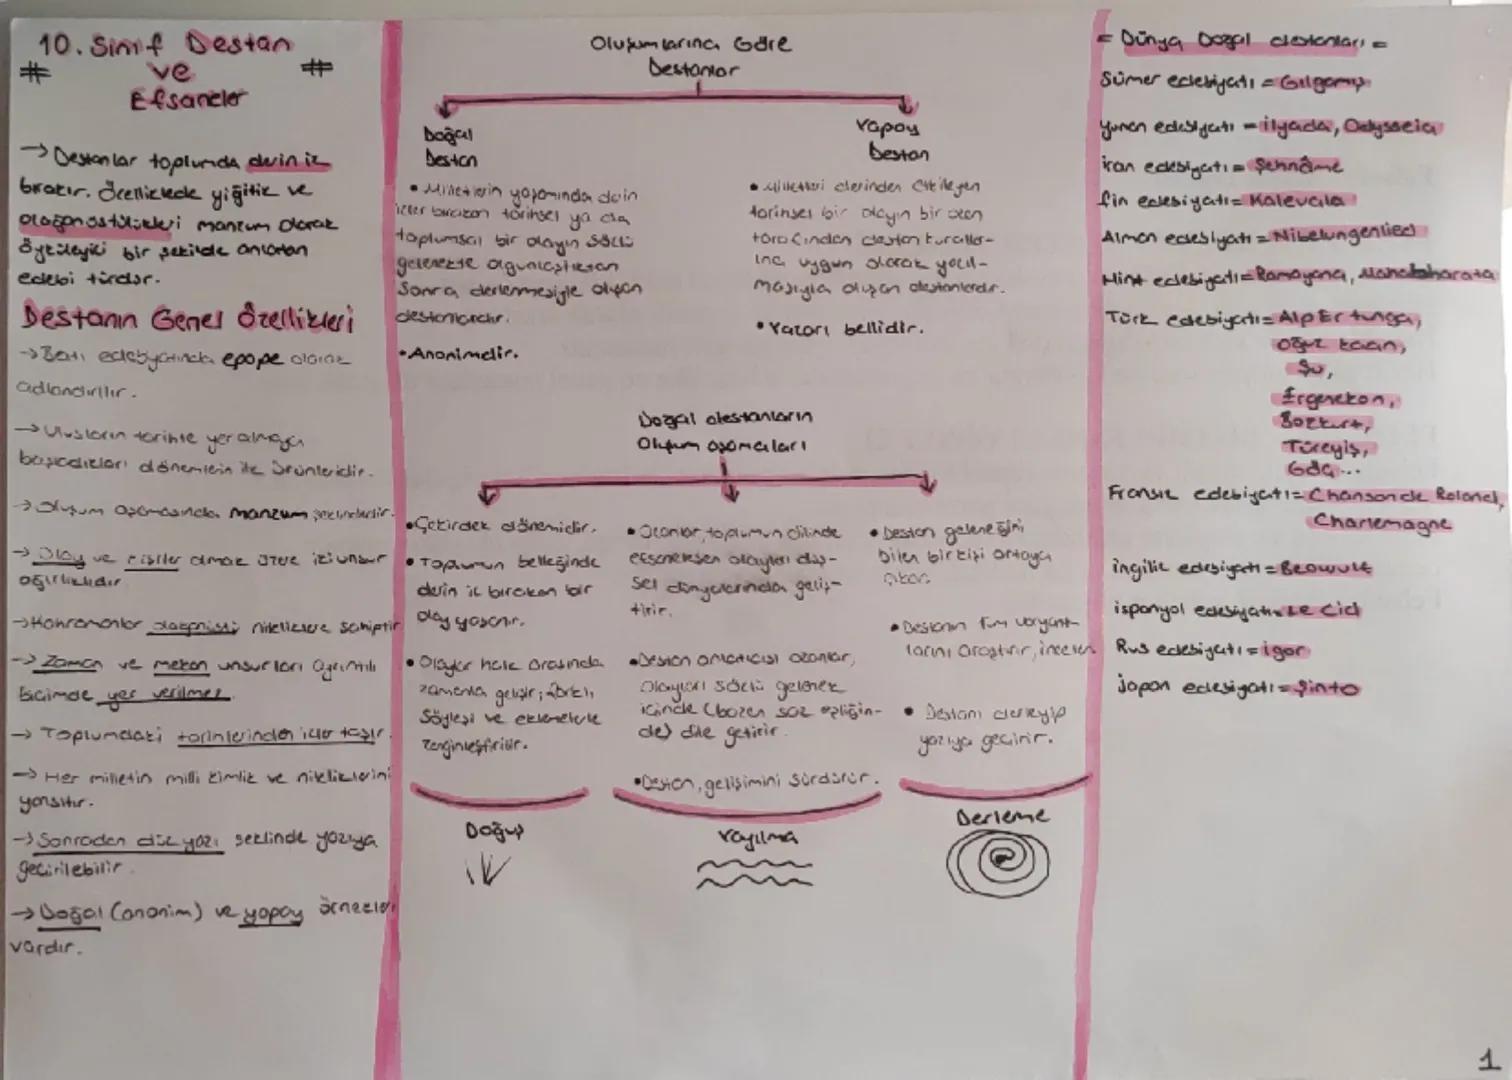 10. Sınıf Destan
# ve #
Efsaneler
→ Destanlar toplumda derin iz
bırakır. Özelliklede yiğitlik ve
olağanüstülükleri manzum olarak
öyküleyici bir şekilde anlatan
edebi türdür.
Destanın Genel Özellikleri
→ Batı edebiyatında epope olarak
adlandırılır.
→ Ulusların tarihte yer almaya
başladıkları dönemlerin ilk ürünleridir.
→ Oluşum aşamasında manzum şeklindedir.
→ Olay ve kişiler olmak üzere iki unsur
ağırlıklıdır
→ Kahramanlar olağanüstü niteliklere sahiptir
→ Zaman ve mekan unsurları ayrıntılı
biçimde yer verilmez.
→ Toplumdaki tarihlerinden izler taşır.
→ Her milletin milli kimlik ve niteliklerini
yansıtır.
→ Sonradan düz yazı şeklinde yazıya
geçirilebilir.
→ Doğal (anonim) ve yapay örnekleri
vardır.
Oluşumlarına Göre
Destanlar
Doğal
Destan
• Milletlerin yaşamında derin
izler bırakan tarihsel ya da
toplumsal bir olayın sözlü
gelenekte olgunlaştıktan
sonra derlenmesiyle oluşan
destanlardır.
• Anonimdir.
Yapay
Destan
• Milletleri derinden etkileyen
tarihsel bir olayın bir ozan
tarafından destan kuralla-
rına uygun olarak yazıl-
masıyla oluşan destanlardır.
• Yazarı bellidir.
Doğal destanların
Oluşum aşamaları
• Çekirdek dönemidir.
• Toplumun belleğinde
derin iz bırakan bir
olay yaşanır.
• Olaylar halk arasında
zamanla gelişir; türkü,
söyleşi ve eklemelerle
zenginleştirilir.
Doğuş
• Ozanlar, toplumun dilinde
efsaneleşen olayları düş-
sel dünyalarında geliş-
tirir.
• Destan anlatıcısı ozanlar,
olayları sözlü gelenek
içinde (bazen saz eşliğin-
de) dile getirir.
• Destan, gelişimini sürdürür.
Yayılma
• Destan geleneğini
bilen bir kişi ortaya
çıkar.
• Destanın tüm varyant-
larını araştırır, inceler.
• Destanı derleyip
yazıya geçirir.
Derleme
= Dünya Doğal destanları =
Sümer edebiyatı = Gılgamış
Yunan edebiyatı = İlyada, Odysseia
İran edebiyatı = Şehnâme
Fin edebiyatı = Kalevala
Alman edebiyatı = Nibelungenlied
Hint edebiyatı = Ramayana, Mahabharata
Türk edebiyatı = Alp Er tunga,
Oğuz kaan,
Şu,
Ergenekon,
Bozkurt,
Türeyiş,
Göç...
Fransız edebiyatı = Chanson de Roland,
Charlemagne
İngiliz edebiyatı = Beowulf
İspanyol edebiyatı = Le Cid
Rus edebiyatı = igor
japon edebiyatı = Şinto
1